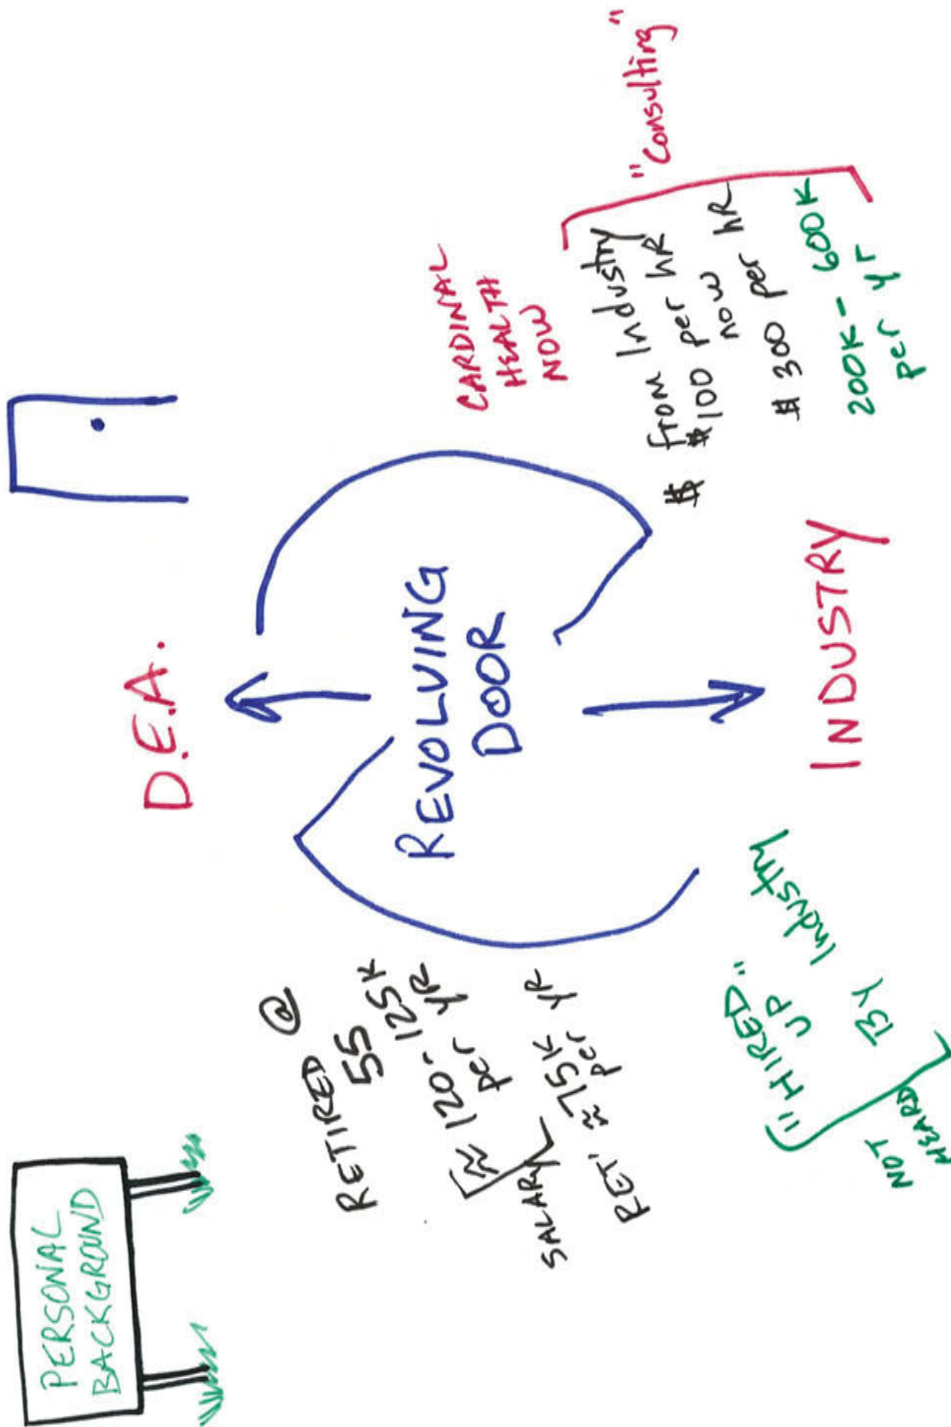 PERSONAL
BACKGROUND
D.E.A.
REVOLVING
DOOR
INDUSTRY
RETIRED @
55
≈ 120-125K
per YR
SALARY
RET' ≈ 75K
per YR
"HIRED"
UP
BY Industry
NOT
HEARD
CARDINAL
HEALTH
NOW
$ from Industry
$100 per hR
now
$300 per hR
200K - 600K
per yr
"Consulting"